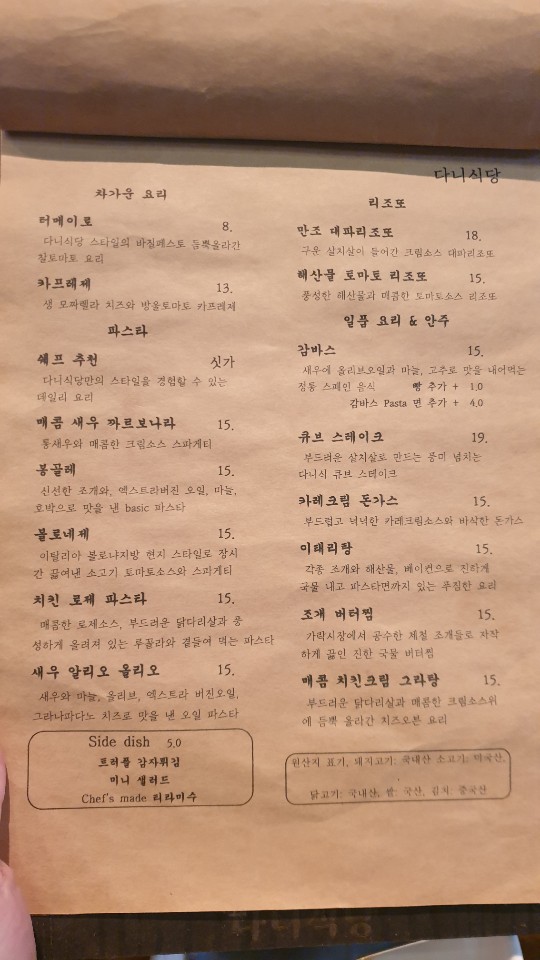 다니식당
차가운 요리
터메이토 8.
다니식당 스타일의 바질페스토 듬뿍올라간
찰토마토 요리
카프레제 13.
생 모짜렐라 치즈와 방울토마토 카프레제
파스타
쉐프 추천 싯가
다니식당만의 스타일을 경험할 수 있는
데일리 요리
매콤 새우 까르보나라 15.
통새우와 매콤한 크림소스 스파게티
봉골레 15.
신선한 조개와, 엑스트라버진 오일, 마늘,
호박으로 맛을 낸 basic 파스타
볼로네제 15.
이탈리아 볼로냐지방 현지 스타일로 장시
간 끓여낸 소고기 토마토소스와 스파게티
치킨 로제 파스타 15.
매콤한 로제소스, 부드러운 닭다리살과 풍
성하게 올려져 있는 루꼴라와 곁들여 먹는 파스타
새우 알리오 올리오 15.
새우와 마늘, 올리브, 엑스트라 버진오일,
그라나파다노 치즈로 맛을 낸 오일 파스타
Side dish 5.0
트러플 감자튀김
미니 샐러드
Chef's made 티라미수
리조또
만조 대파리조또 18.
구운 살치살이 들어간 크림소스 대파리조또
해산물 토마토 리조또 15.
풍성한 해산물과 매콤한 토마토소스 리조또
일품 요리 & 안주
감바스 15.
새우에 올리브오일과 마늘, 고추로 맛을 내어먹는
정통 스페인 음식 빵 추가 + 1.0
감바스 Pasta 면 추가 + 4.0
큐브 스테이크 19.
부드러운 살치살로 만드는 풍미 넘치는
다니식 큐브 스테이크
카레크림 돈가스 15.
부드럽고 넉넉한 카레크림소스와 바삭한 돈가스
이태리탕 15.
각종 조개와 해산물, 베이컨으로 진하게
국물 내고 파스타면까지 있는 푸짐한 요리
조개 버터찜 15.
가락시장에서 공수한 제철 조개들로 자작
하게 끓인 진한 국물 버터찜
매콤 치킨크림 그라탕 15.
부드러운 닭다리살과 매콤한 크림소스위
에 듬뿍 올라간 치즈오븐 요리
원산지 표기, 돼지고기: 국내산 소고기: 미국산,
닭고기: 국내산, 쌀: 국산, 김치: 중국산
다니식당